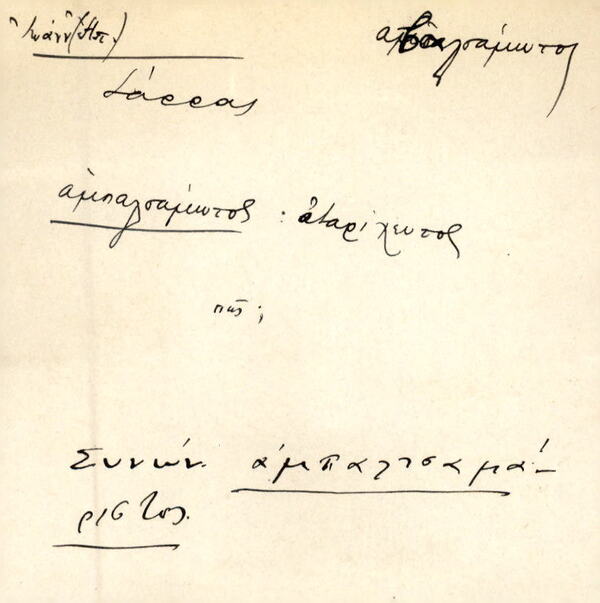 Ἰωάνν(Ἠπ.) ἀμπαλσάμωτος
Σάρρας
ἀμπαλσάμωτος : ἀταρίχευτος
πᾶς ;
Συνών. ἀμπαλτσαμά-
ριστος.